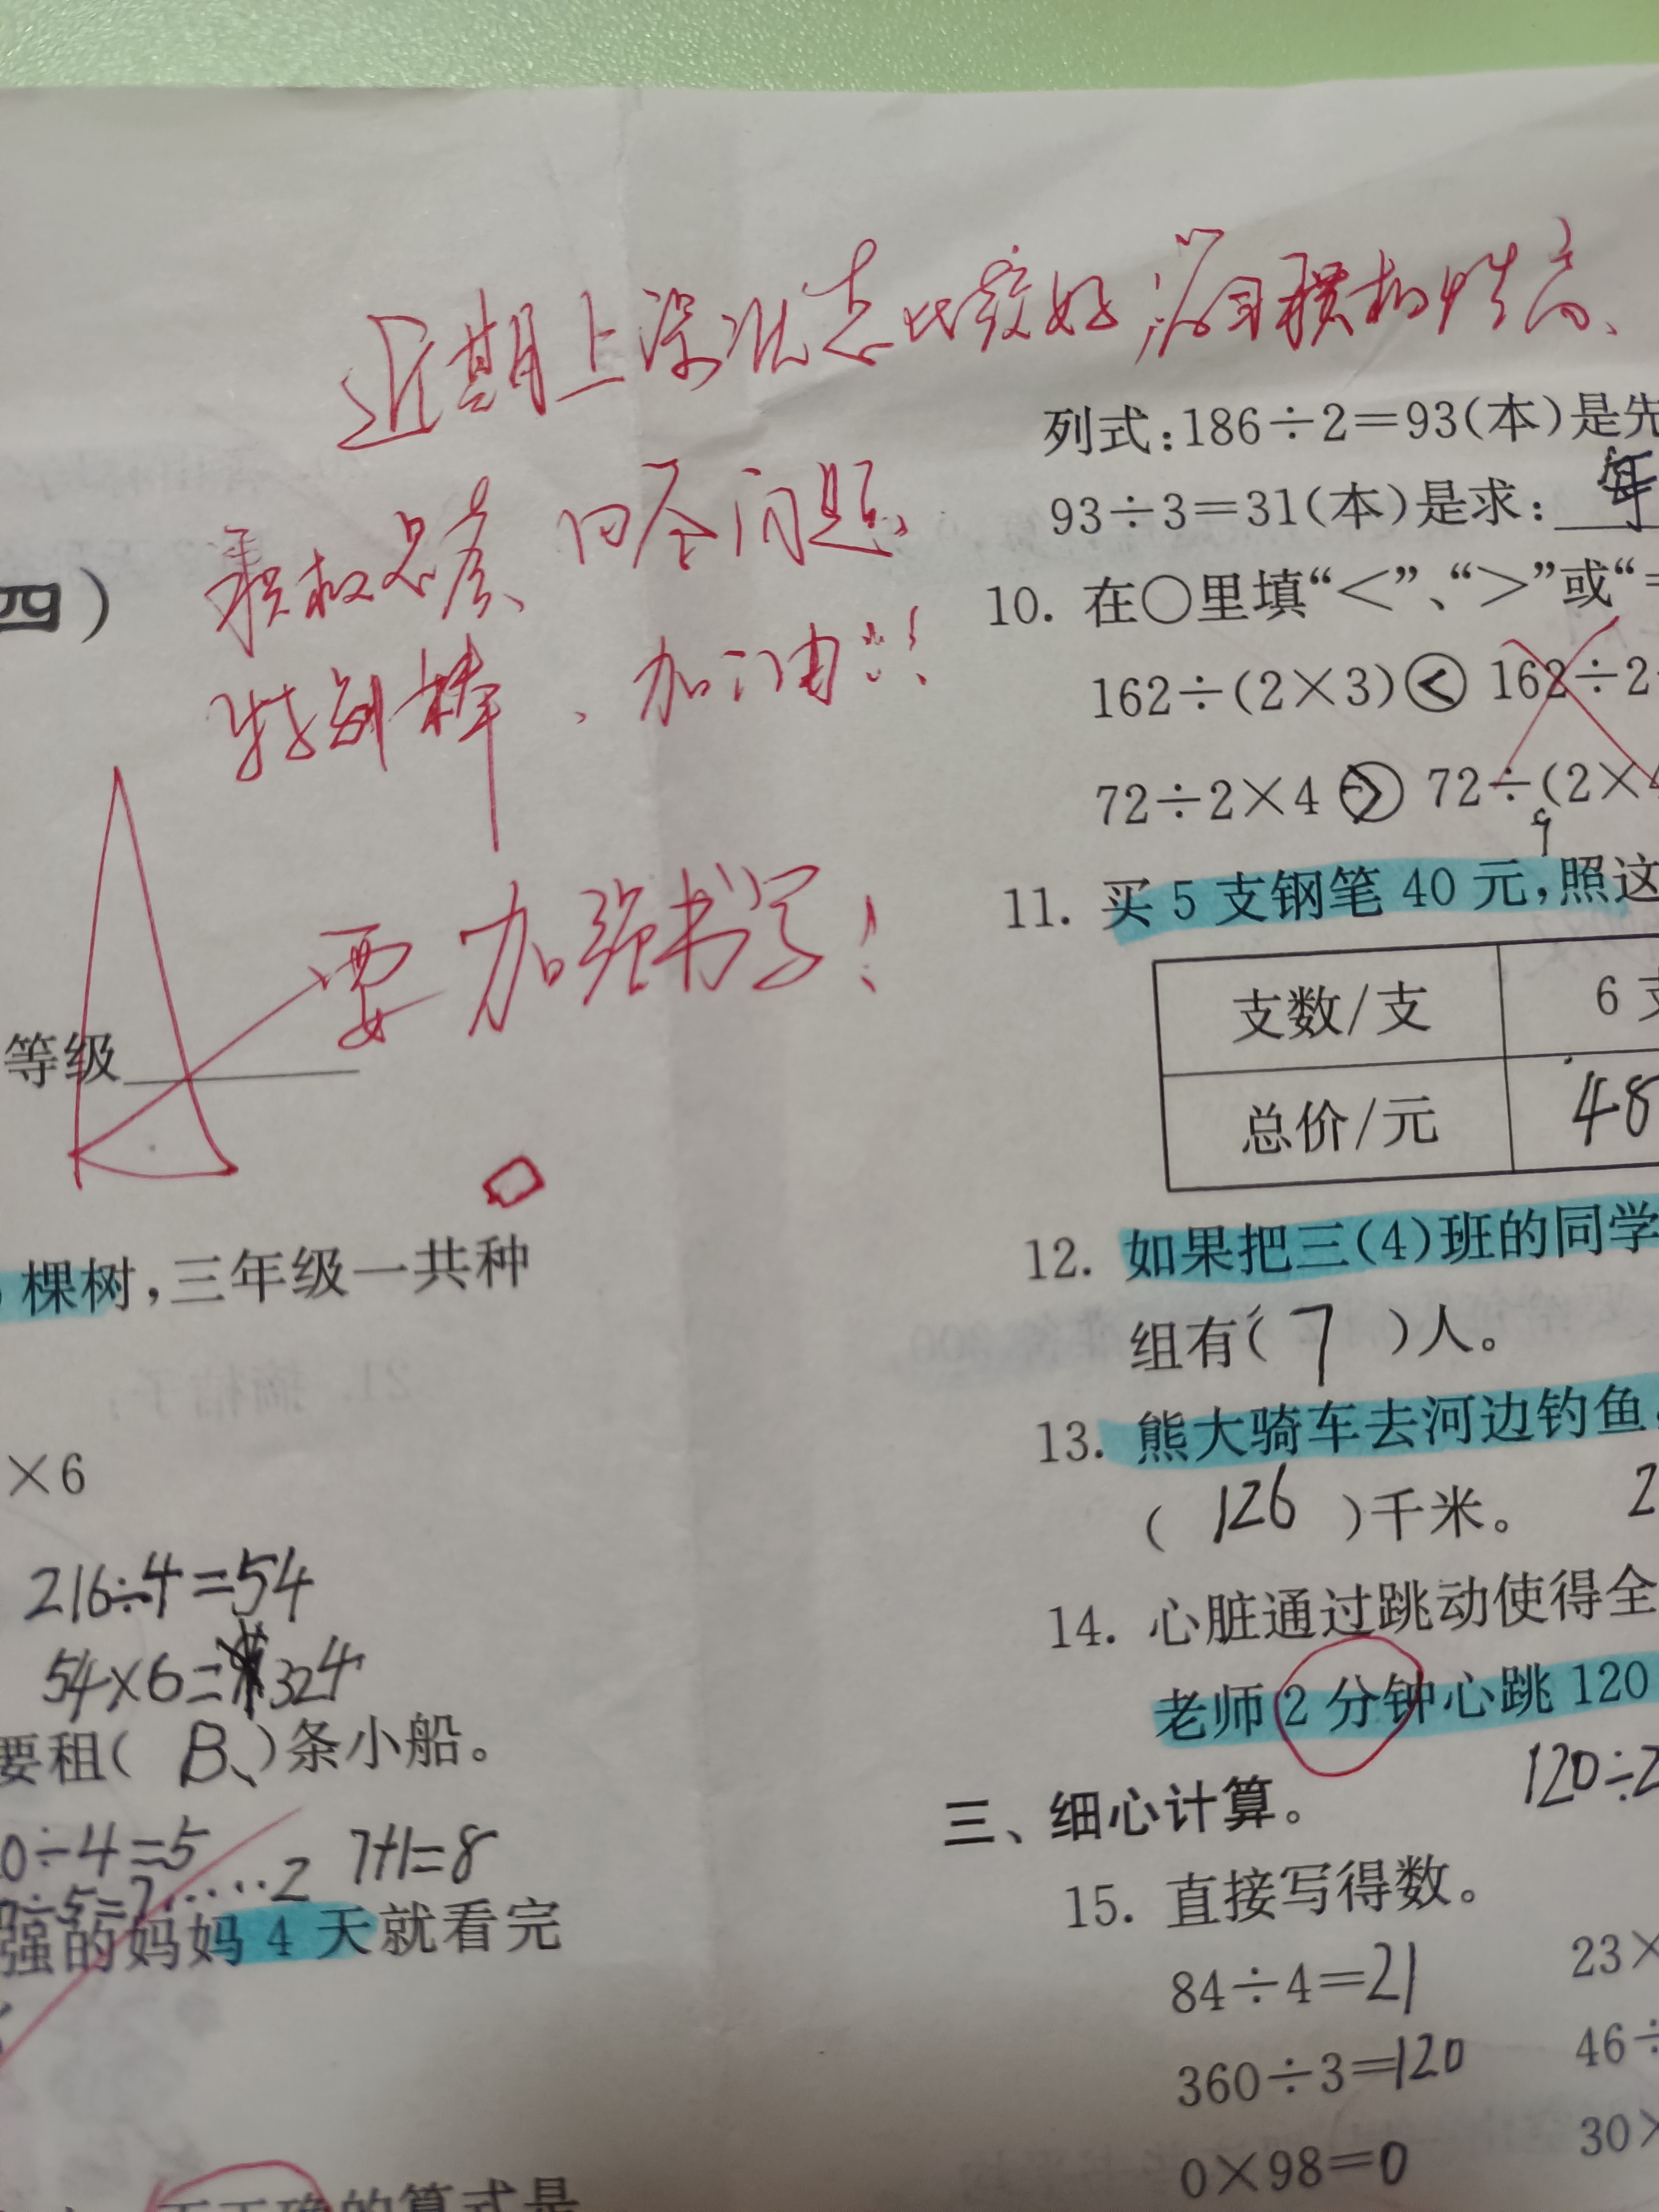 近期上课状态比较好，学习积极性高、
积极思考、回答问题，
特别棒、加油！！！
要加强书写！
四）
等级
棵树，三年级一共种
×6
216÷4=54
54×6=324
要租（ B、）条小船。
0÷4=5
7+1=8
÷5=7……2
强的妈妈4天就看完
的算式是
列式：186÷2=93（本）是先
93÷3=31（本）是求：每
10. 在○里填“<”、“>”或“=
162÷(2×3)<162÷2
72÷2×4>72÷(2×4
9
11. 买5支钢笔40元，照这
支数/支 6支
总价/元 48
12. 如果把三(4)班的同学
组有（ 7 ）人。
13. 熊大骑车去河边钓鱼，
（ 126 ）千米。 2
14. 心脏通过跳动使得全
老师2分钟心跳120
120÷2
三、细心计算。
15. 直接写得数。
84÷4=21 23×
360÷3=120 46÷
0×98=0 30×